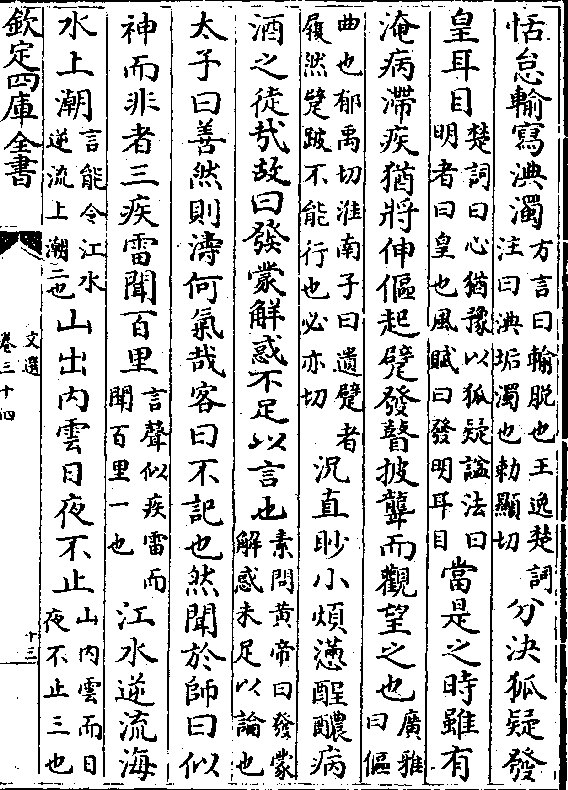 恬怠輸寫淟濁方言曰輸脱也王逸楚詞注曰淟垢濁也勅顯切分決狐疑發
皇耳目楚詞曰心猶豫以狐疑諡法曰明者曰皇也風賦曰發明耳目當是之時雖有
淹病滯疾猶將伸傴起躄發瞽披聾而觀望之也廣雅曰傴
曲也郁禹切淮南子曰遺躄者履然躄跛不能行也必亦切況直眇小煩懣酲醲病
酒之徒㢤故曰發蒙解惑不足以言也素問黄帝曰發蒙解惑未足以論也
太子曰善然則濤何氣哉客曰不記也然聞於師曰似
神而非者三疾雷聞百里言聲似疾雷而聞百里一也江水逆流海
水上潮言能令江水逆流上潮二也山出内雲日夜不止山内雲而日夜不止三也
欽定四庫全書
文選
卷三十四
十三